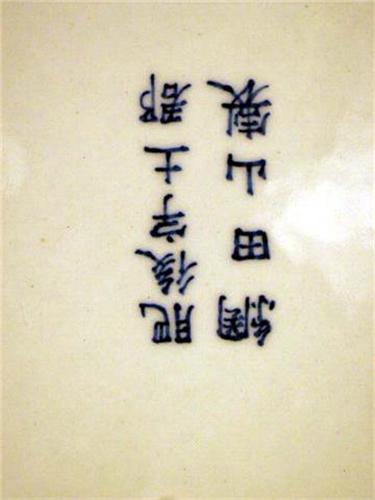 肥後宇土郡
網田山製